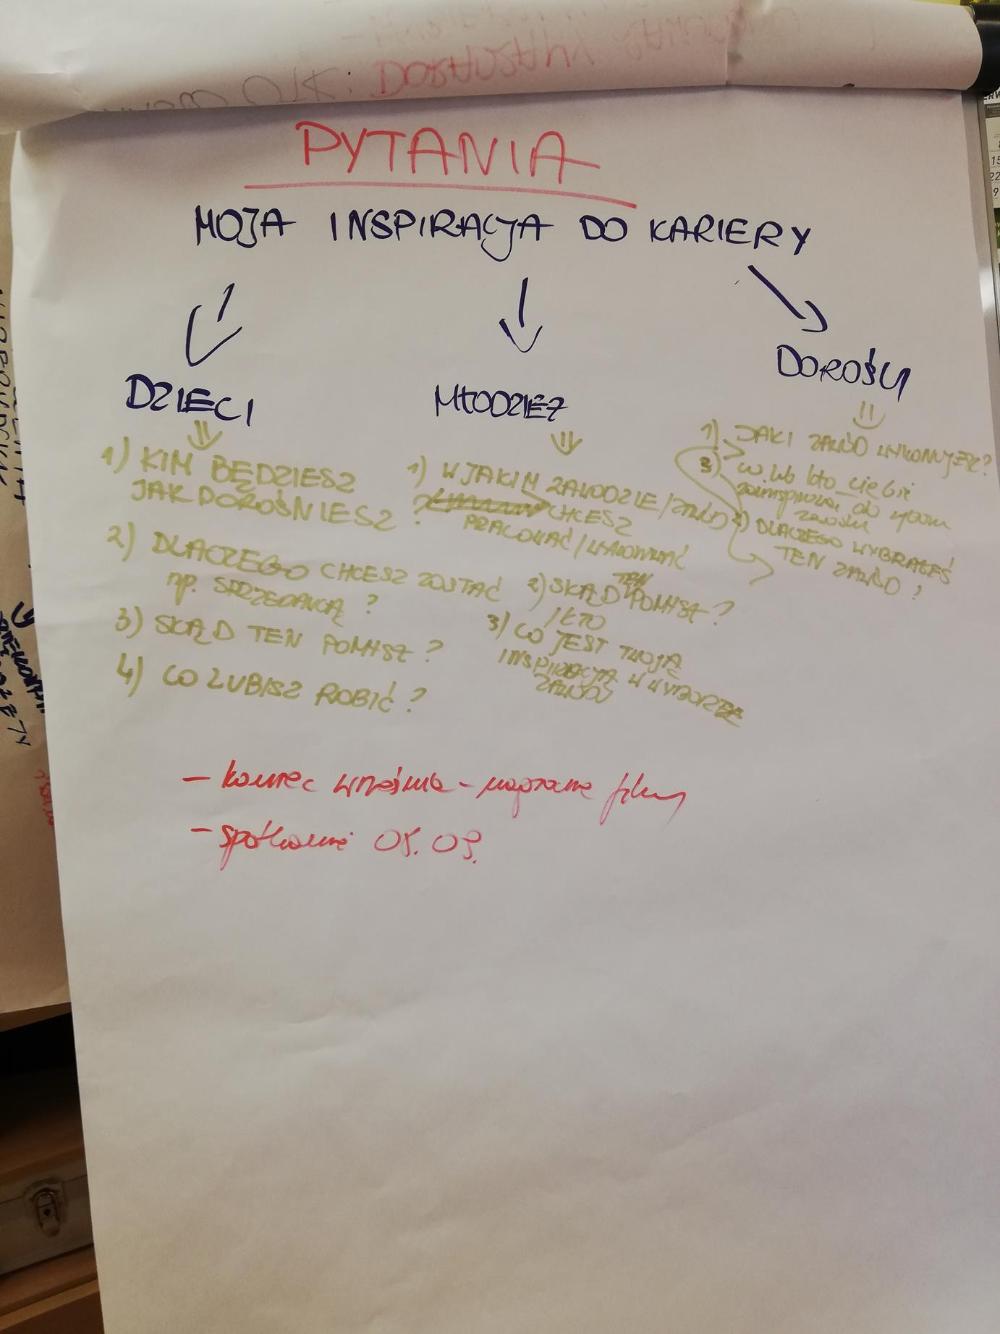 PYTANIA
MOJA INSPIRACJA DO KARIERY
DZIECI
1) KIM BĘDZIESZ
JAK DOROŚNIESZ ?
2) DLACZEGO CHCESZ ZOSTAĆ
np. SPRZEDAWCĄ ?
3) SKĄD TEN POMYSŁ ?
4) CO LUBISZ ROBIĆ ?
MŁODZIEŻ
1) W JAKIM ZAWODZIE / ZAWÓD
CHCESZ
PRACOWAĆ / WYKONYWAĆ
2) SKĄD TEN POMYSŁ ?
3) CO / KTO JEST TWOJĄ
INSPIRACJĄ W WYBORZE
ZAWODU
DOROŚLI
1) JAKI ZAWÓD WYKONUJESZ ?
3) co lub kto ciebie
zainspirował do
zawodu
2) DLACZEGO WYBRAŁEŚ
TEN ZAWÓD ?
- koniec września - filmy
- spotkanie 05.09.